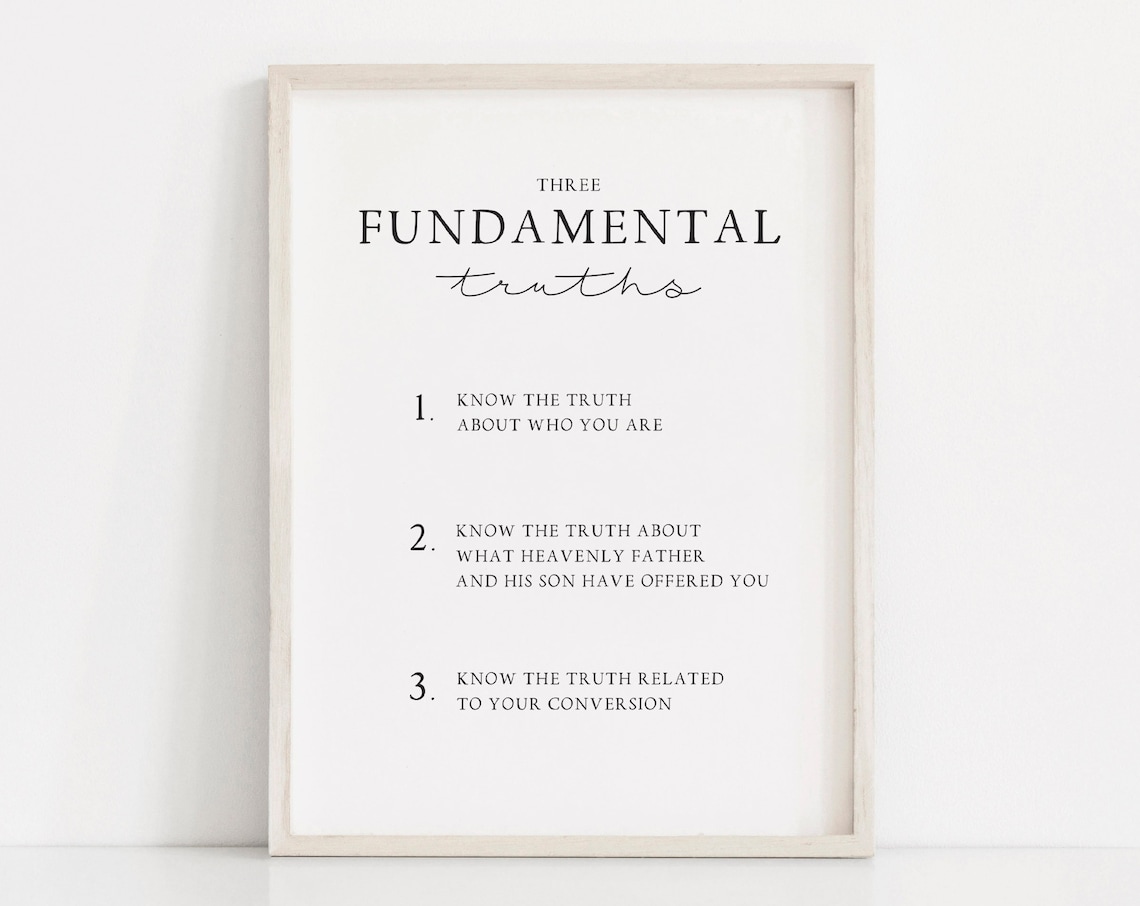 THREE
FUNDAMENTAL
truths
1. KNOW THE TRUTH
ABOUT WHO YOU ARE
2. KNOW THE TRUTH ABOUT
WHAT HEAVENLY FATHER
AND HIS SON HAVE OFFERED YOU
3. KNOW THE TRUTH RELATED
TO YOUR CONVERSION